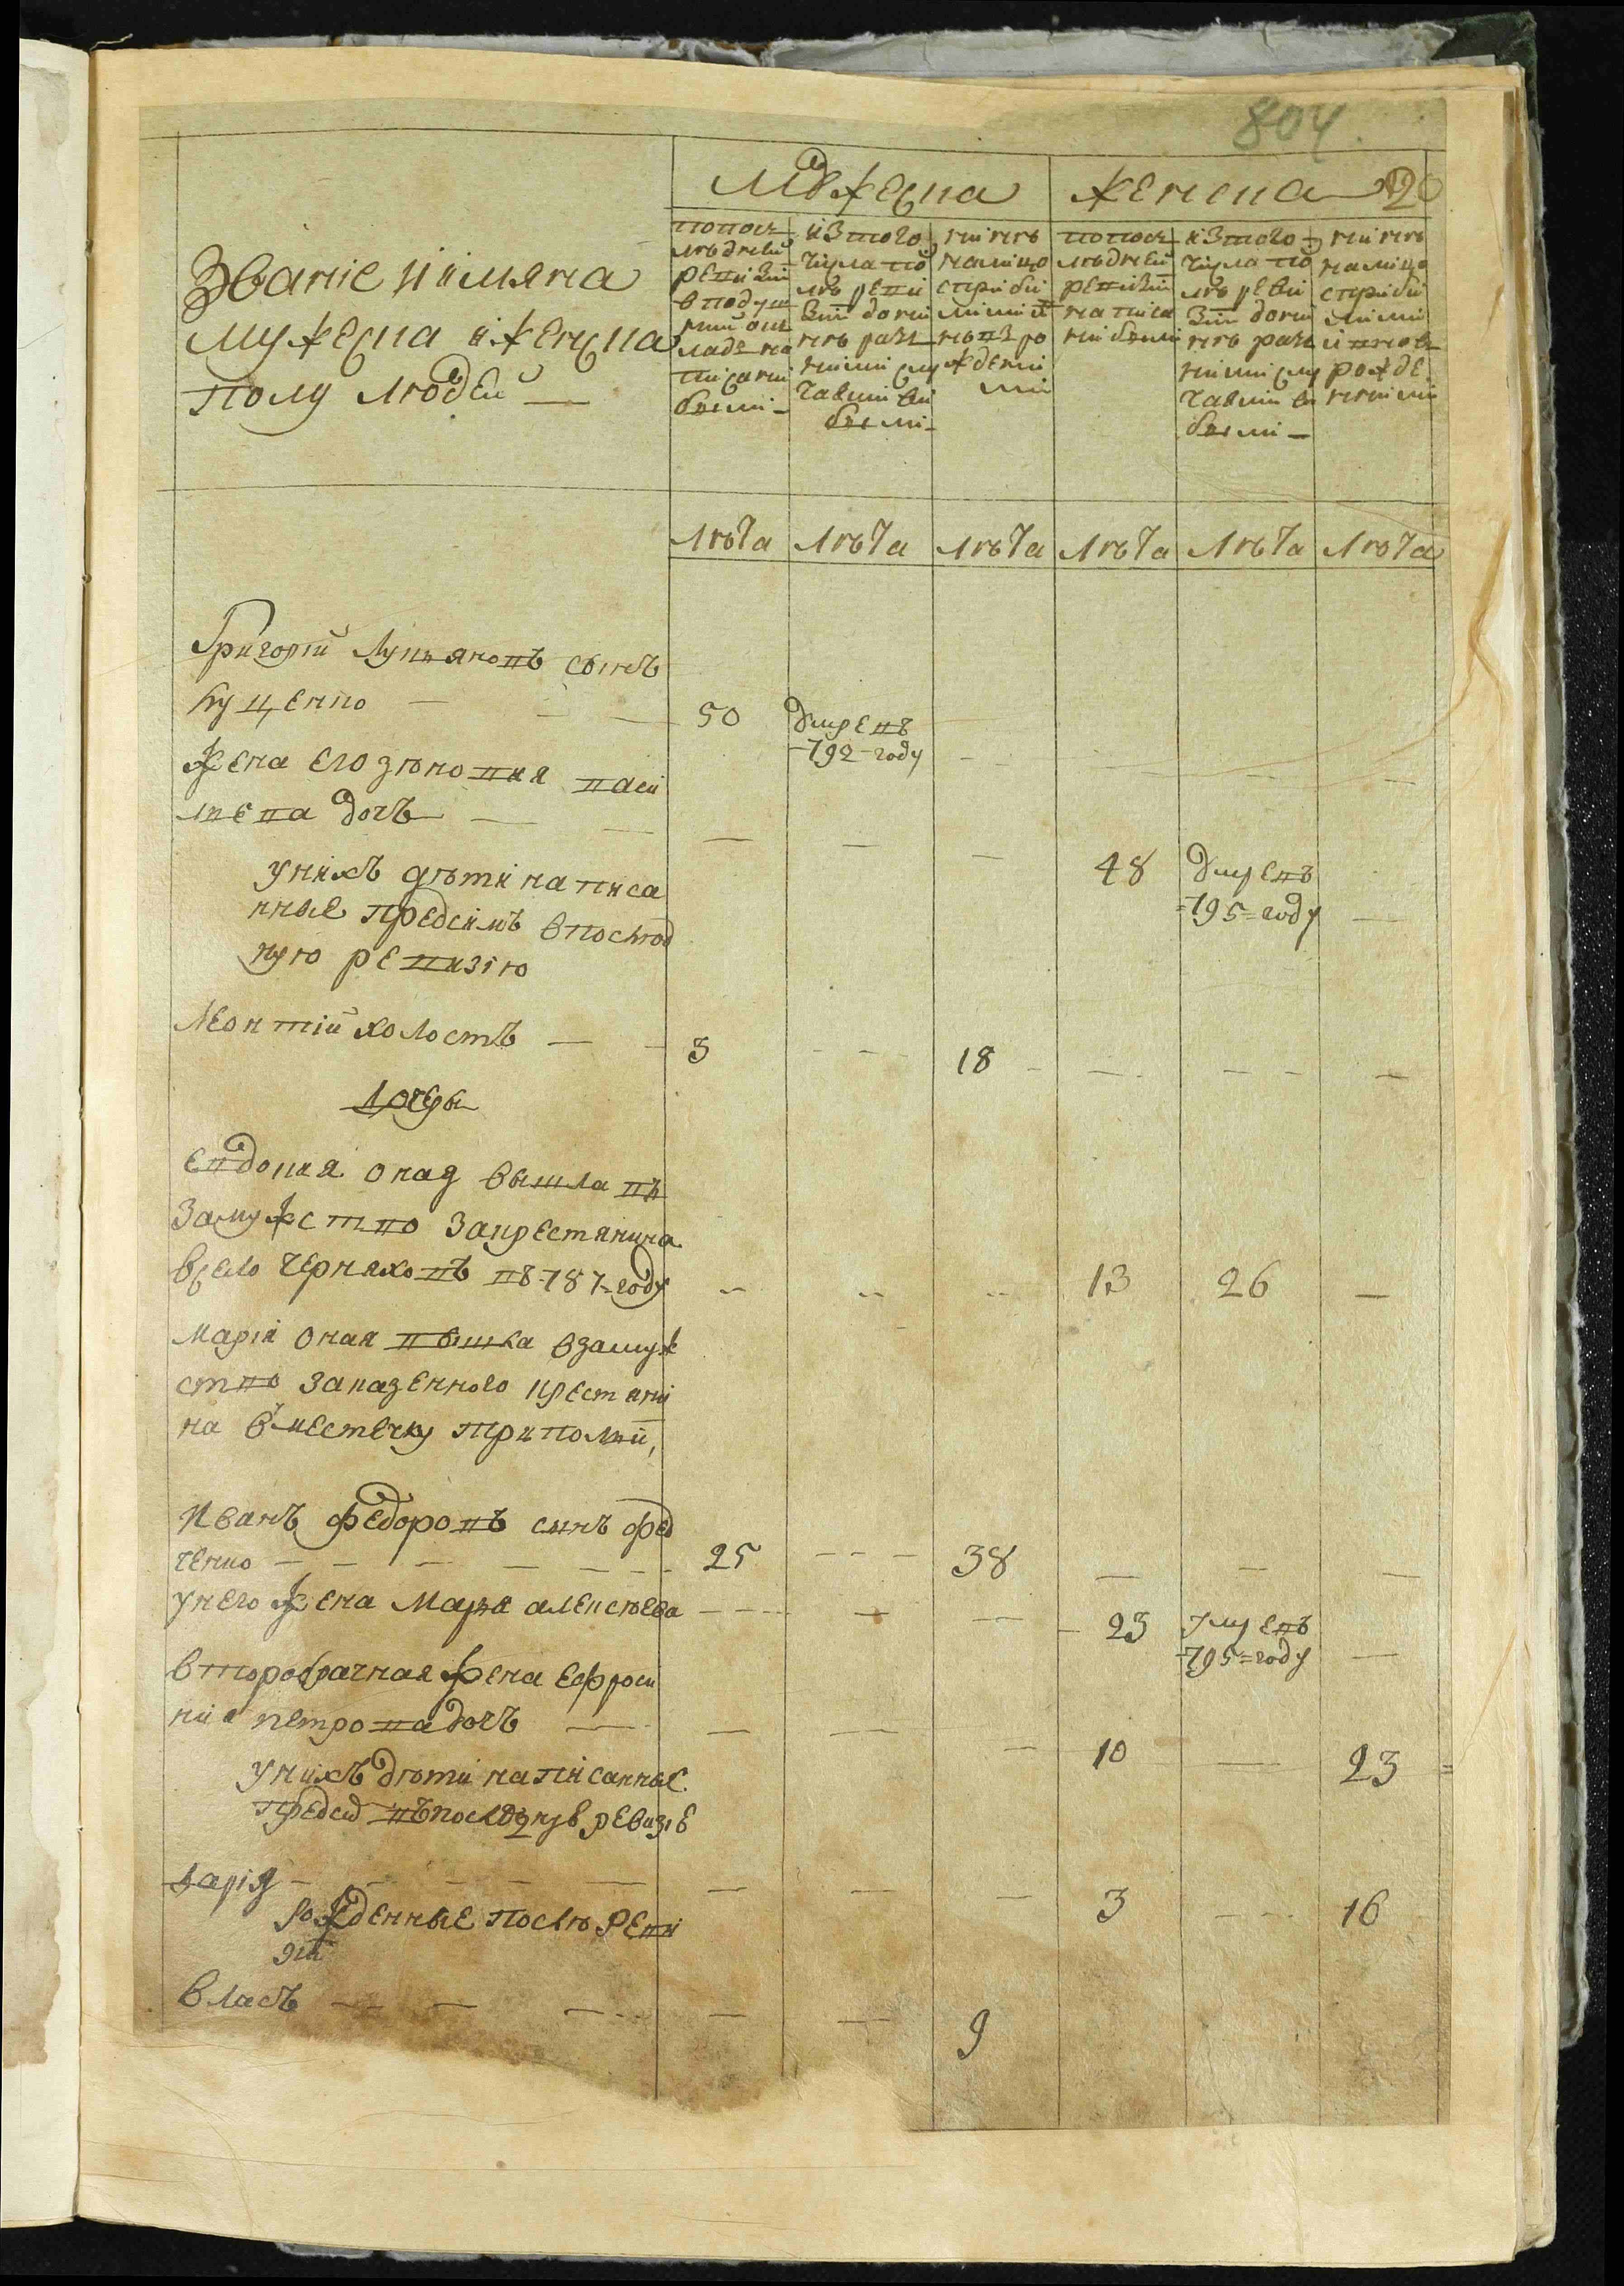 804
120
Мужеска
Женска
Званіе и имяна
мужеска и женска
полу людей —
по пос
лѣдней
ревизіи
в подуш
ный ок
ладъ на
писаны
были —
изъ того
числа по
лѣ реви
зіи до ны
нѣ разн
ными слу
чаями вы
были —
нынѣ
на лицо
с прибы
лыми и
новоро
жденны
ми
по пос
лѣдней
ревизіи
написа
ны были
изъ того
числа по
лѣ реви
зіи до ны
нѣ разн
ными слу
чаями вы
были —
нынѣ
на лицо
с прибы
лыми
и новъ
рожде
нными
Лѣта Лѣта Лѣта Лѣта Лѣта Лѣта
Григорій Лукьяновъ сынъ
Куценко — 50 Умревъ
-792-году
Жена его Зѣновия васи
лиева дочъ — 48 Умревъ
=795=году
у нихъ дѣти написа
нные предсимъ в послѣд
нюю ревизію
Леонтій холостъ — 3 18
Дочеры
Евдокия оная вышла въ
замужство за крестянина
в село Черняховъ въ 787-году 13 26
Марія оная вышла в замуж
ство за казенного крестяни
на в местечку Триполѣй,
Иванъ Федоровъ сынъ Фед
ченко — 25 38
у него жена Марья алексѣева 23 Умревъ
-795=году
второбрачная жена Ефроси
ния петрова дочъ — 10 23
у нихъ дѣти написанные
предсим въ последнув ревизіе
Дарія — 3 16
рожденные послѣ реви
зіи
власъ — 9